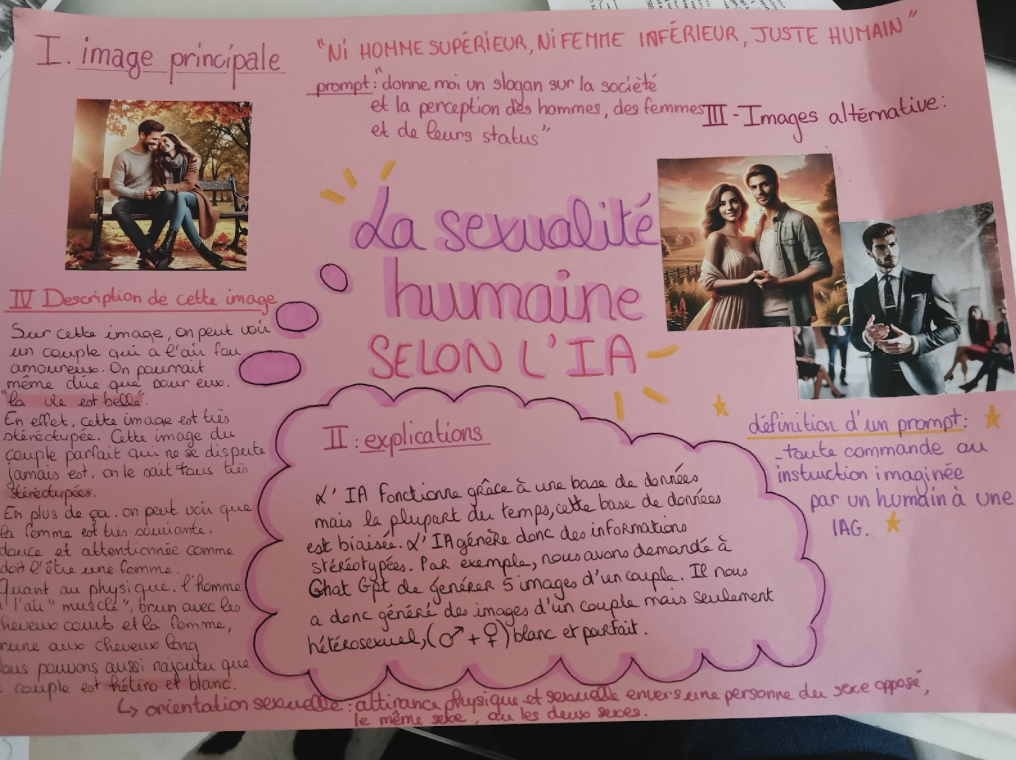 I. image principale
"NI HOMME SUPÉRIEUR, NI FEMME INFÉRIEUR, JUSTE HUMAIN"
prompt: "donne moi un slogan sur la société
et la perception des hommes, des femmes
et de leurs status"
La sexualité
humaine
SELON L'IA
II : explications
L' IA fonctionne grâce à une base de données
mais la plupart du temps, cette base de données
est biaisée. L'IA génère donc des informations
stéréotypées. Par exemple, nous avons demandé à
Chat Gpt de générer 5 images d'un couple. Il nous
a donc généré des images d'un couple mais seulement
hétérosexuel, (♂ + ♀) blanc et parfait.
III - Images altérnative:
définition d'un prompt:
- toute commande ou
instruction imaginée
par un humain à une
IAG.
IV Description de cette image
Sur cette image, on peut voir
un couple qui a l'air fou
amoureux. On pourrait
même dire que pour eux,
"la vie est belle".
En effet, cette image est très
stéréotypée. Cette image du
couple parfait qui ne se dispute
jamais est, on le sait tous très
stéréotypées.
En plus de ça, on peut voir que
la femme est très souriante,
douce et attentionnée comme
doit l'être une femme.
Quant au physique, l'homme
a l'air "musclé", brun avec les
cheveux courts et la femme,
brune aux cheveux long
Nous pouvons aussi rajouter que
le couple est hétéro et blanc.
↳ orientation sexuelle : attirance physique et sexuelle envers une personne du sexe opposé,
le même sexe, ou les deux sexes.